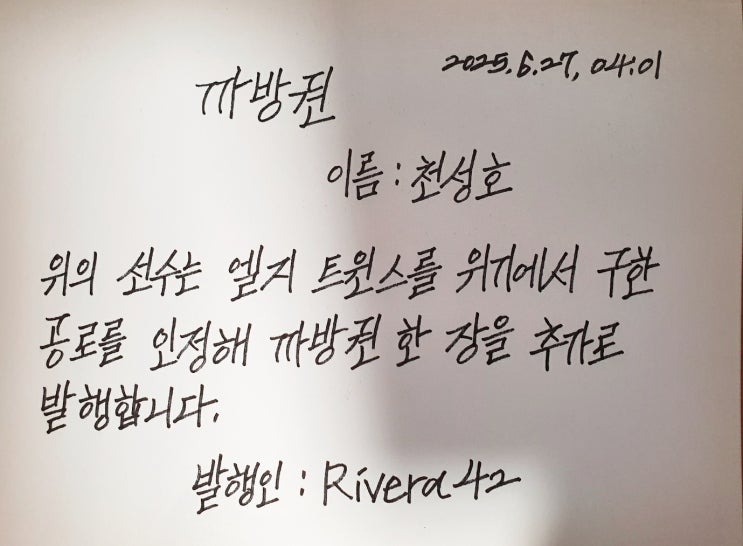 2025.6.27, 04:01
까방권
이름 : 천성호
위의 선수는 엘지 트윈스를 위기에서 구한
공로를 인정해 까방권 한 장을 추가로
발행합니다.
발행인 : Rivera42